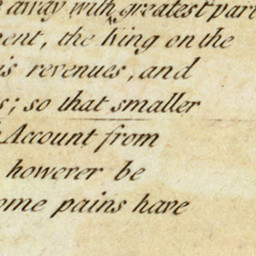 away with greatest part
ent, the King on the
is revenues, and
s; so that smaller
Account from
however be
ome pains have